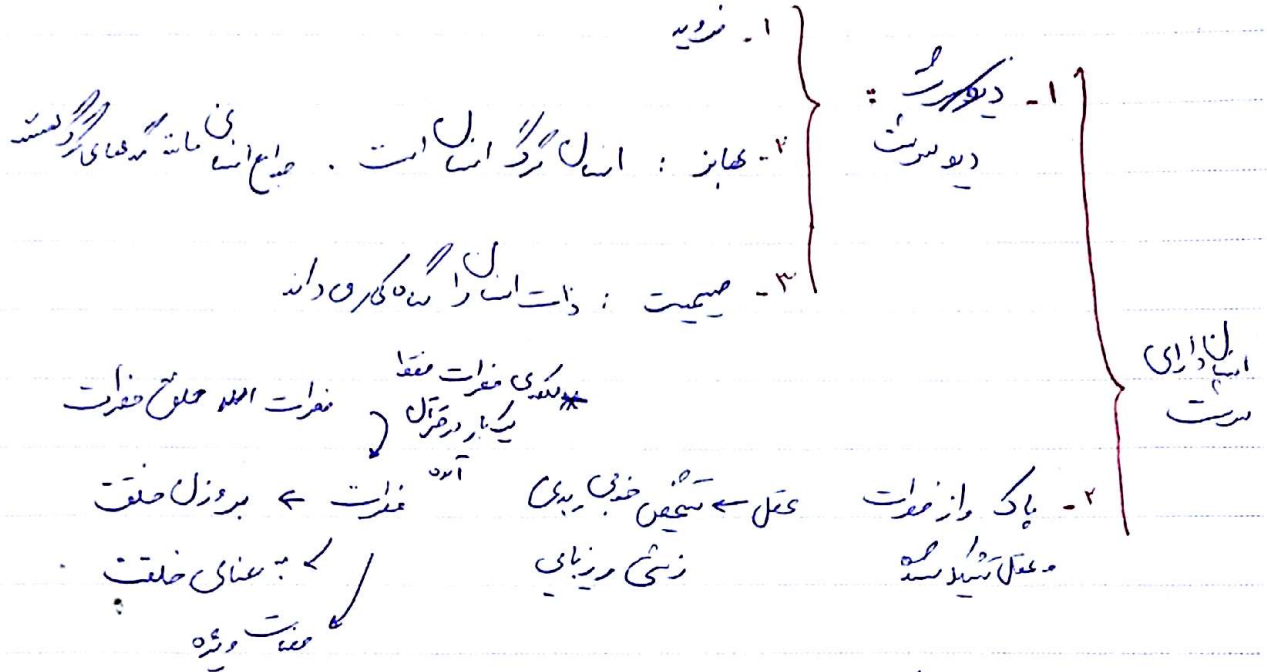 انسان دارای سرشت
۱- دیو سرشت :
دیو سرشت
۱- فروید
۲- هابز : انسان گرگ انسان است . جوامع انسانی مانند گله‌های گرگ هستند
۳- مسیحیت : ذات انسان را گناه کار می داند
۲- پاک و از فطرت
و عقل تشکیل شده
عقل ← تشخیص خوبی و بدی
زشتی و زیبایی
* کلمه‌ی فطرت فقط
یک بار در قرآن
آمده
فطرت الله
فطرت ← بر وزن خلقت
← به معنای خلقت
صفات ویژه